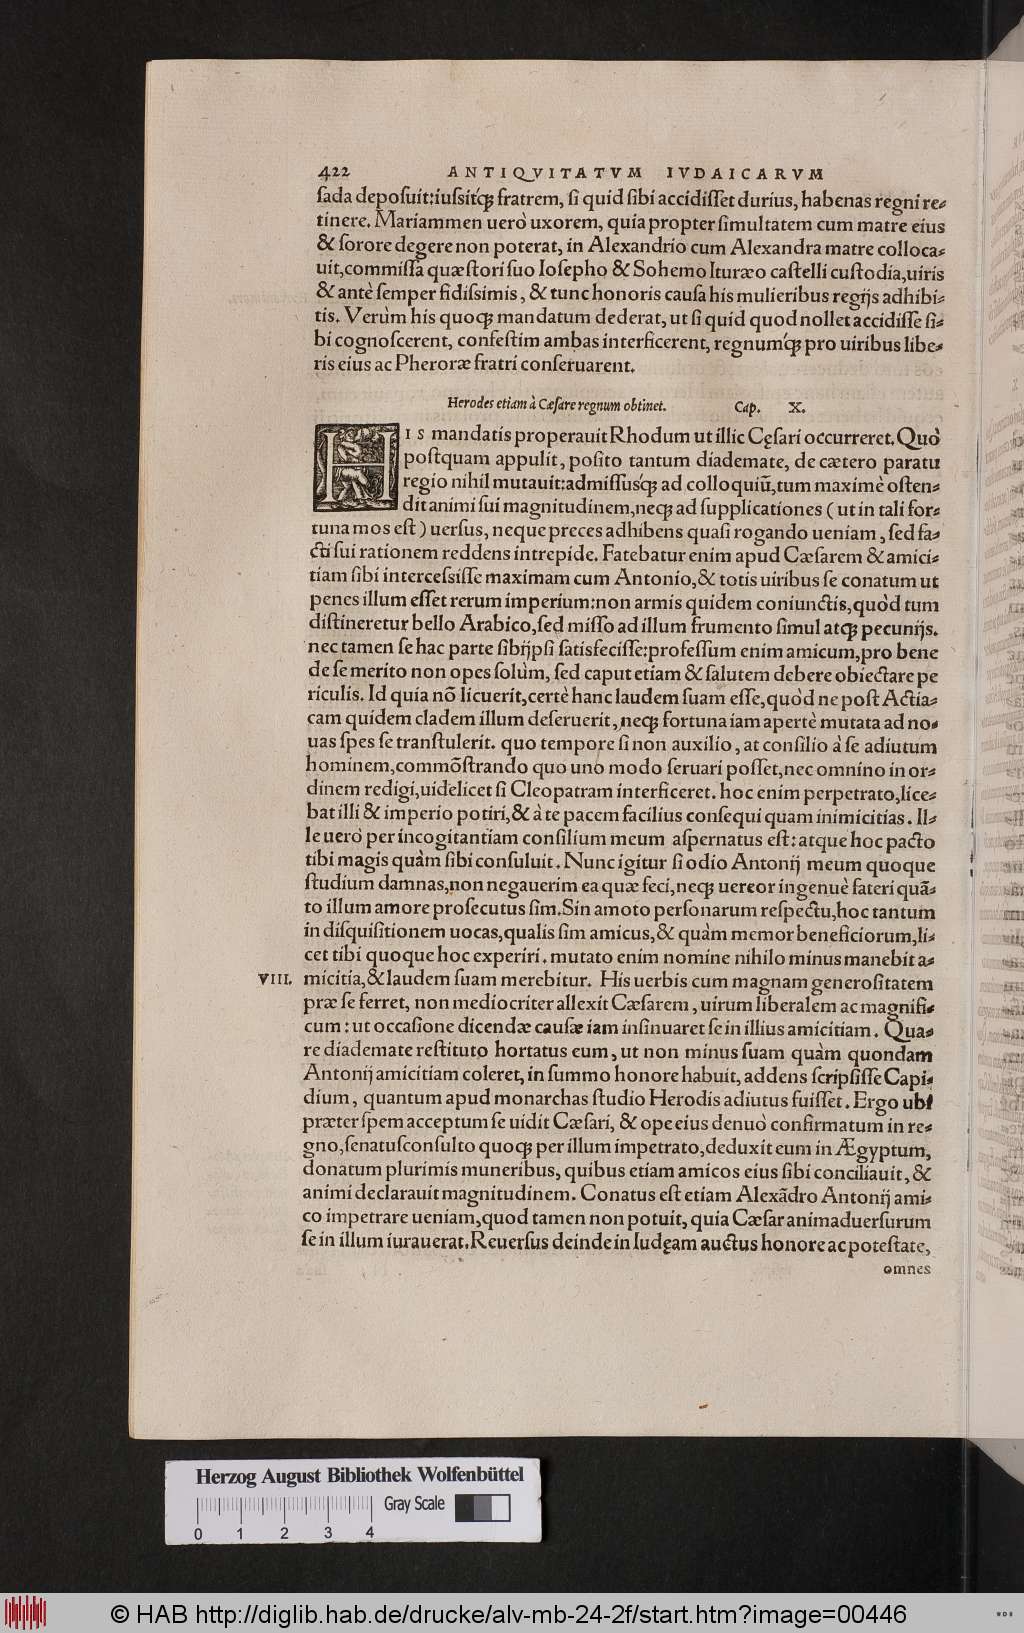 422 ANTIQVITATVM IVDAICARVM
ſada depoſuit:iuſsitq́ꝫ fratrem, ſi quid ſibi accidiſſet durius, habenas regni re-
tinere. Mariammen uerò uxorem, quia propter ſimultatem cum matre eius
& ſorore degere non poterat, in Alexandrio cum Alexandra matre colloca-
uit,commiſſa quæſtori ſuo Ioſepho & Sohemo Ituræo caſtelli cuſtodia,uiris
& antè ſemper fidiſsimis, & tunc honoris cauſa his mulieribus regijs adhibi-
tis. Verùm his quoqꝫ mandatum dederat, ut ſi quid quod nollet accidiſſe ſi-
bi cognoſcerent, confeſtim ambas interficerent, regnumq́ꝫ pro uiribus libe-
ris eius ac Pheroræ fratri conſeruarent.
Herodes etiam à Cæſare regnum obtinet. Cap. X.
HIS mandatis properauit Rhodum ut illic Cęſari occurreret. Quò
poſtquam appulit, poſito tantum diademate, de cætero paratu
regio nihil mutauit:admiſſusq́ꝫ ad colloquiũ,tum maximè oſten-
dit animi ſui magnitudinem,neqꝫ ad ſupplicationes (ut in tali for-
tuna mos eſt) uerſus, neque preces adhibens quaſi rogando ueniam, ſed fa-
cti ſui rationem reddens intrepide. Fatebatur enim apud Cæſarem & amici-
tiam ſibi interceſsiſſe maximam cum Antonio,& totis uiribus ſe conatum ut
penes illum eſſet rerum imperium:non armis quidem coniunctis,quòd tum
diſtineretur bello Arabico,ſed miſſo ad illum frumento ſimul atqꝫ pecunijs.
nec tamen ſe hac parte ſibijpſi ſatisfeciſſe:profeſſum enim amicum,pro bene
de ſe merito non opes ſolùm, ſed caput etiam & ſalutem debere obiectare pe
riculis. Id quia nõ licuerit,certè hanc laudem ſuam eſſe,quòd ne poſt Actia-
cam quidem cladem illum deſeruerit, neqꝫ fortuna iam apertè mutata ad no-
uas ſpes ſe tranſtulerit. quo tempore ſi non auxilio, at conſilio à ſe adiutum
hominem,commõſtrando quo uno modo ſeruari poſſet,nec omnino in or-
dinem redigi,uidelicet ſi Cleopatram interficeret. hoc enim perpetrato,lice-
bat illi & imperio potiri,& à te pacem facilius conſequi quam inimicitias. Il-
le uerò per incogitantiam conſilium meum aſpernatus eſt: atque hoc pacto
tibi magis quàm ſibi conſuluit. Nunc igitur ſi odio Antonij meum quoque
ſtudium damnas,non negauerim ea quæ feci,neqꝫ uereor ingenuè fateri quã-
to illum amore proſecutus ſim.Sin amoto perſonarum reſpectu,hoc tantum
in diſquiſitionem uocas,qualis ſim amicus,& quàm memor beneficiorum,li-
cet tibi quoque hoc experiri. mutato enim nomine nihilo minus manebit a-
VIII. micitia,& laudem ſuam merebitur. His uerbis cum magnam generoſitatem
præ ſe ferret, non mediocriter allexit Cæſarem, uirum liberalem ac magnifi-
cum: ut occaſione dicendæ cauſæ iam inſinuaret ſe in illius amicitiam. Qua-
re diademate reſtituto hortatus eum, ut non minus ſuam quàm quondam
Antonij amicitiam coleret, in ſummo honore habuit, addens ſcripſiſſe Capi-
dium, quantum apud monarchas ſtudio Herodis adiutus fuiſſet. Ergo ubi
præter ſpem acceptum ſe uidit Cæſari, & ope eius denuò confirmatum in re-
gno,ſenatuſconſulto quoqꝫ per illum impetrato,deduxit eum in Ægyptum,
donatum plurimis muneribus, quibus etiam amicos eius ſibi conciliauit, &
animi declarauit magnitudinem. Conatus eſt etiam Alexãdro Antonij ami-
co impetrare ueniam,quod tamen non potuit, quia Cæſar animaduerſurum
ſe in illum iurauerat.Reuerſus deinde in Iudęam auctus honore ac poteſtate,
omnes
Herzog August Bibliothek Wolfenbüttel
Gray Scale
0 1 2 3 4
© HAB http://diglib.hab.de/drucke/alv-mb-24-2f/start.htm?image=00446